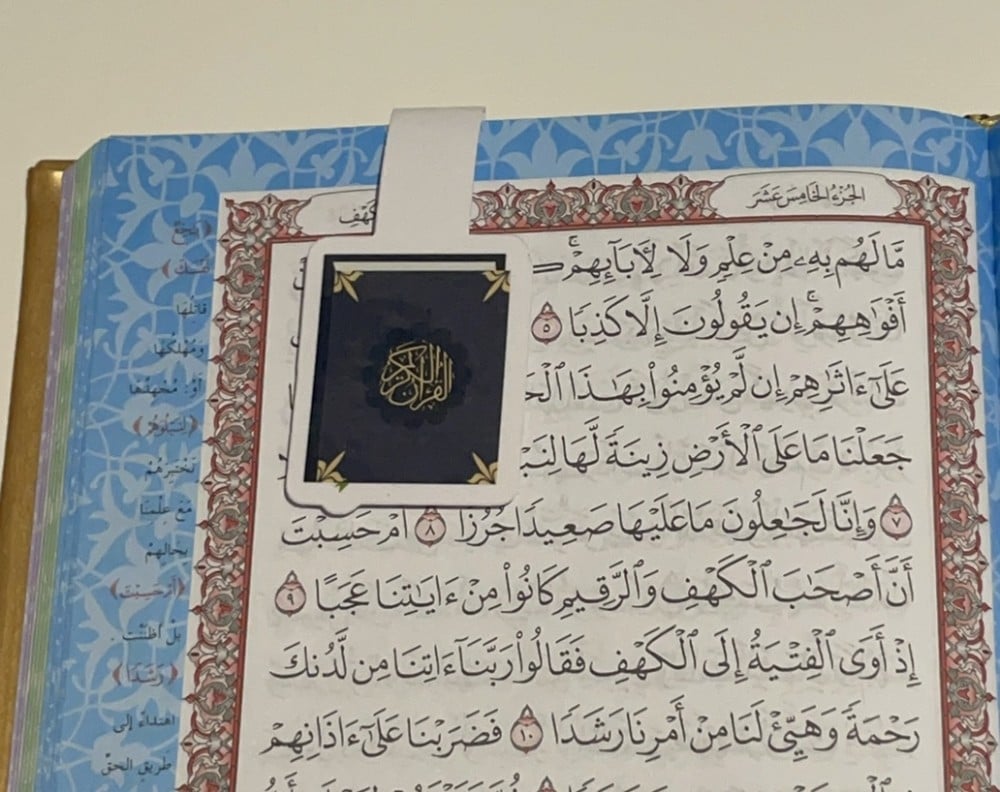 الجُزْءُ الخَامِسَ عَشَرَ
مَّا لَهُم بِهِۦ مِنْ عِلْمٍ وَلَا لِأٓبَآئِهِمْۚ
أَفْوَٰهِهِمْۚ إِن يَقُولُونَ إِلَّا كَذِبًا ٥
عَلَىٰٓ ءَاثَٰرِهِمْ إِن لَّمْ يُؤْمِنُوا۟ بِهَٰذَا
جَعَلْنَا مَا عَلَى ٱلْأَرْضِ زِينَةً لَّهَا
٧ وَإِنَّا لَجَٰعِلُونَ مَا عَلَيْهَا صَعِيدًا جُرُزًا ٨ أَمْ حَسِبْتَ
أَنَّ أَصْحَٰبَ ٱلْكَهْفِ وَٱلرَّقِيمِ كَانُوا۟ مِنْ ءَايَٰتِنَا عَجَبًا ٩
إِذْ أَوَى ٱلْفِتْيَةُ إِلَى ٱلْكَهْفِ فَقَالُوا۟ رَبَّنَآ ءَاتِنَا مِن لَّدُنكَ
رَحْمَةً وَهَيِّئْ لَنَا مِنْ أَمْرِنَا رَشَدًا ١٠ فَضَرَبْنَا عَلَىٰٓ ءَاذَانِهِمْ
القرآن الكريم
قاتلُها
ومُهْلكُها
أوْ: مُجْهِدُها
﴿لِنَبْلُوَهُمْ﴾
نَخْتَبِرَهُمْ
مَعَ عِلْمِنَا
بحالِهِمْ
﴿أَمْ حَسِبْتَ﴾
بلْ أظَنَنْتَ
﴿رَشَدًا﴾
اهتداءً إلى
طريق الحقّ